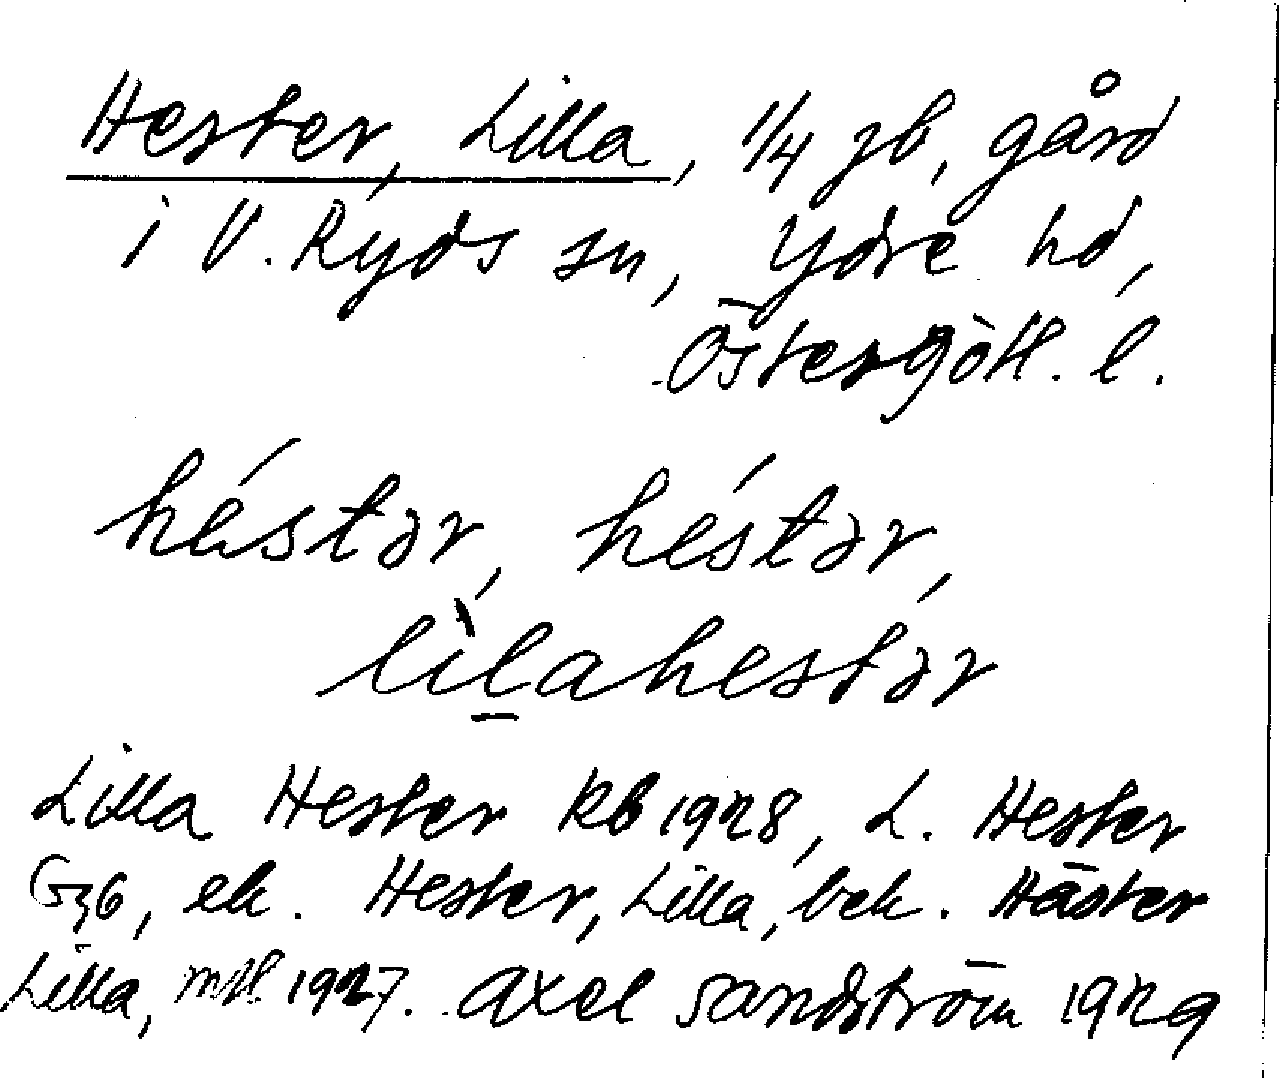 Hester, Lilla, 1/4 jb, gård
i V. Ryds sn, Ydre hd,
Östergötl. l.
héstər, héstər,
lìlahestər
Lilla Hester Kb 1928, L. Hester
Gzb, ek. Hester, Lilla, bek. Häster
Lilla, mtl 1927. Axel Sandström 1929